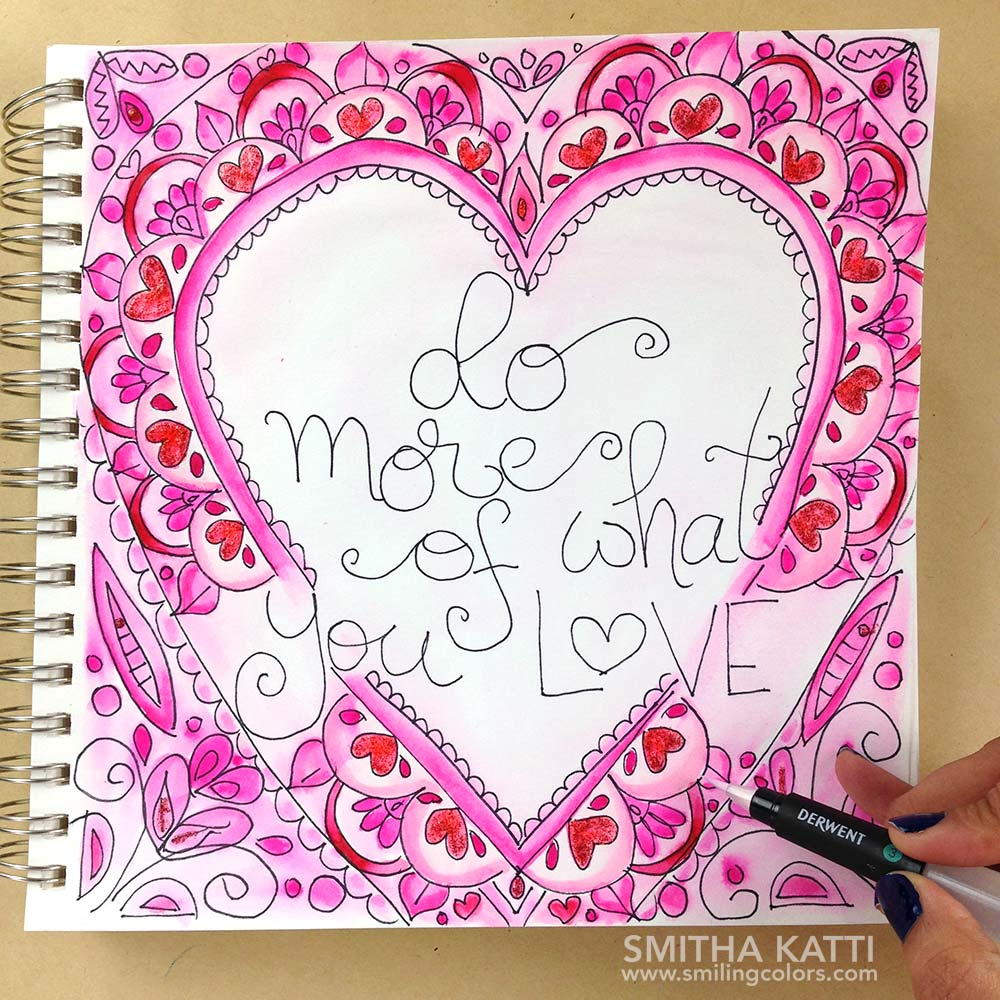 do
more
of what
you LOVE
DERWENT
SMITHA KATTI
www.smilingcolors.com